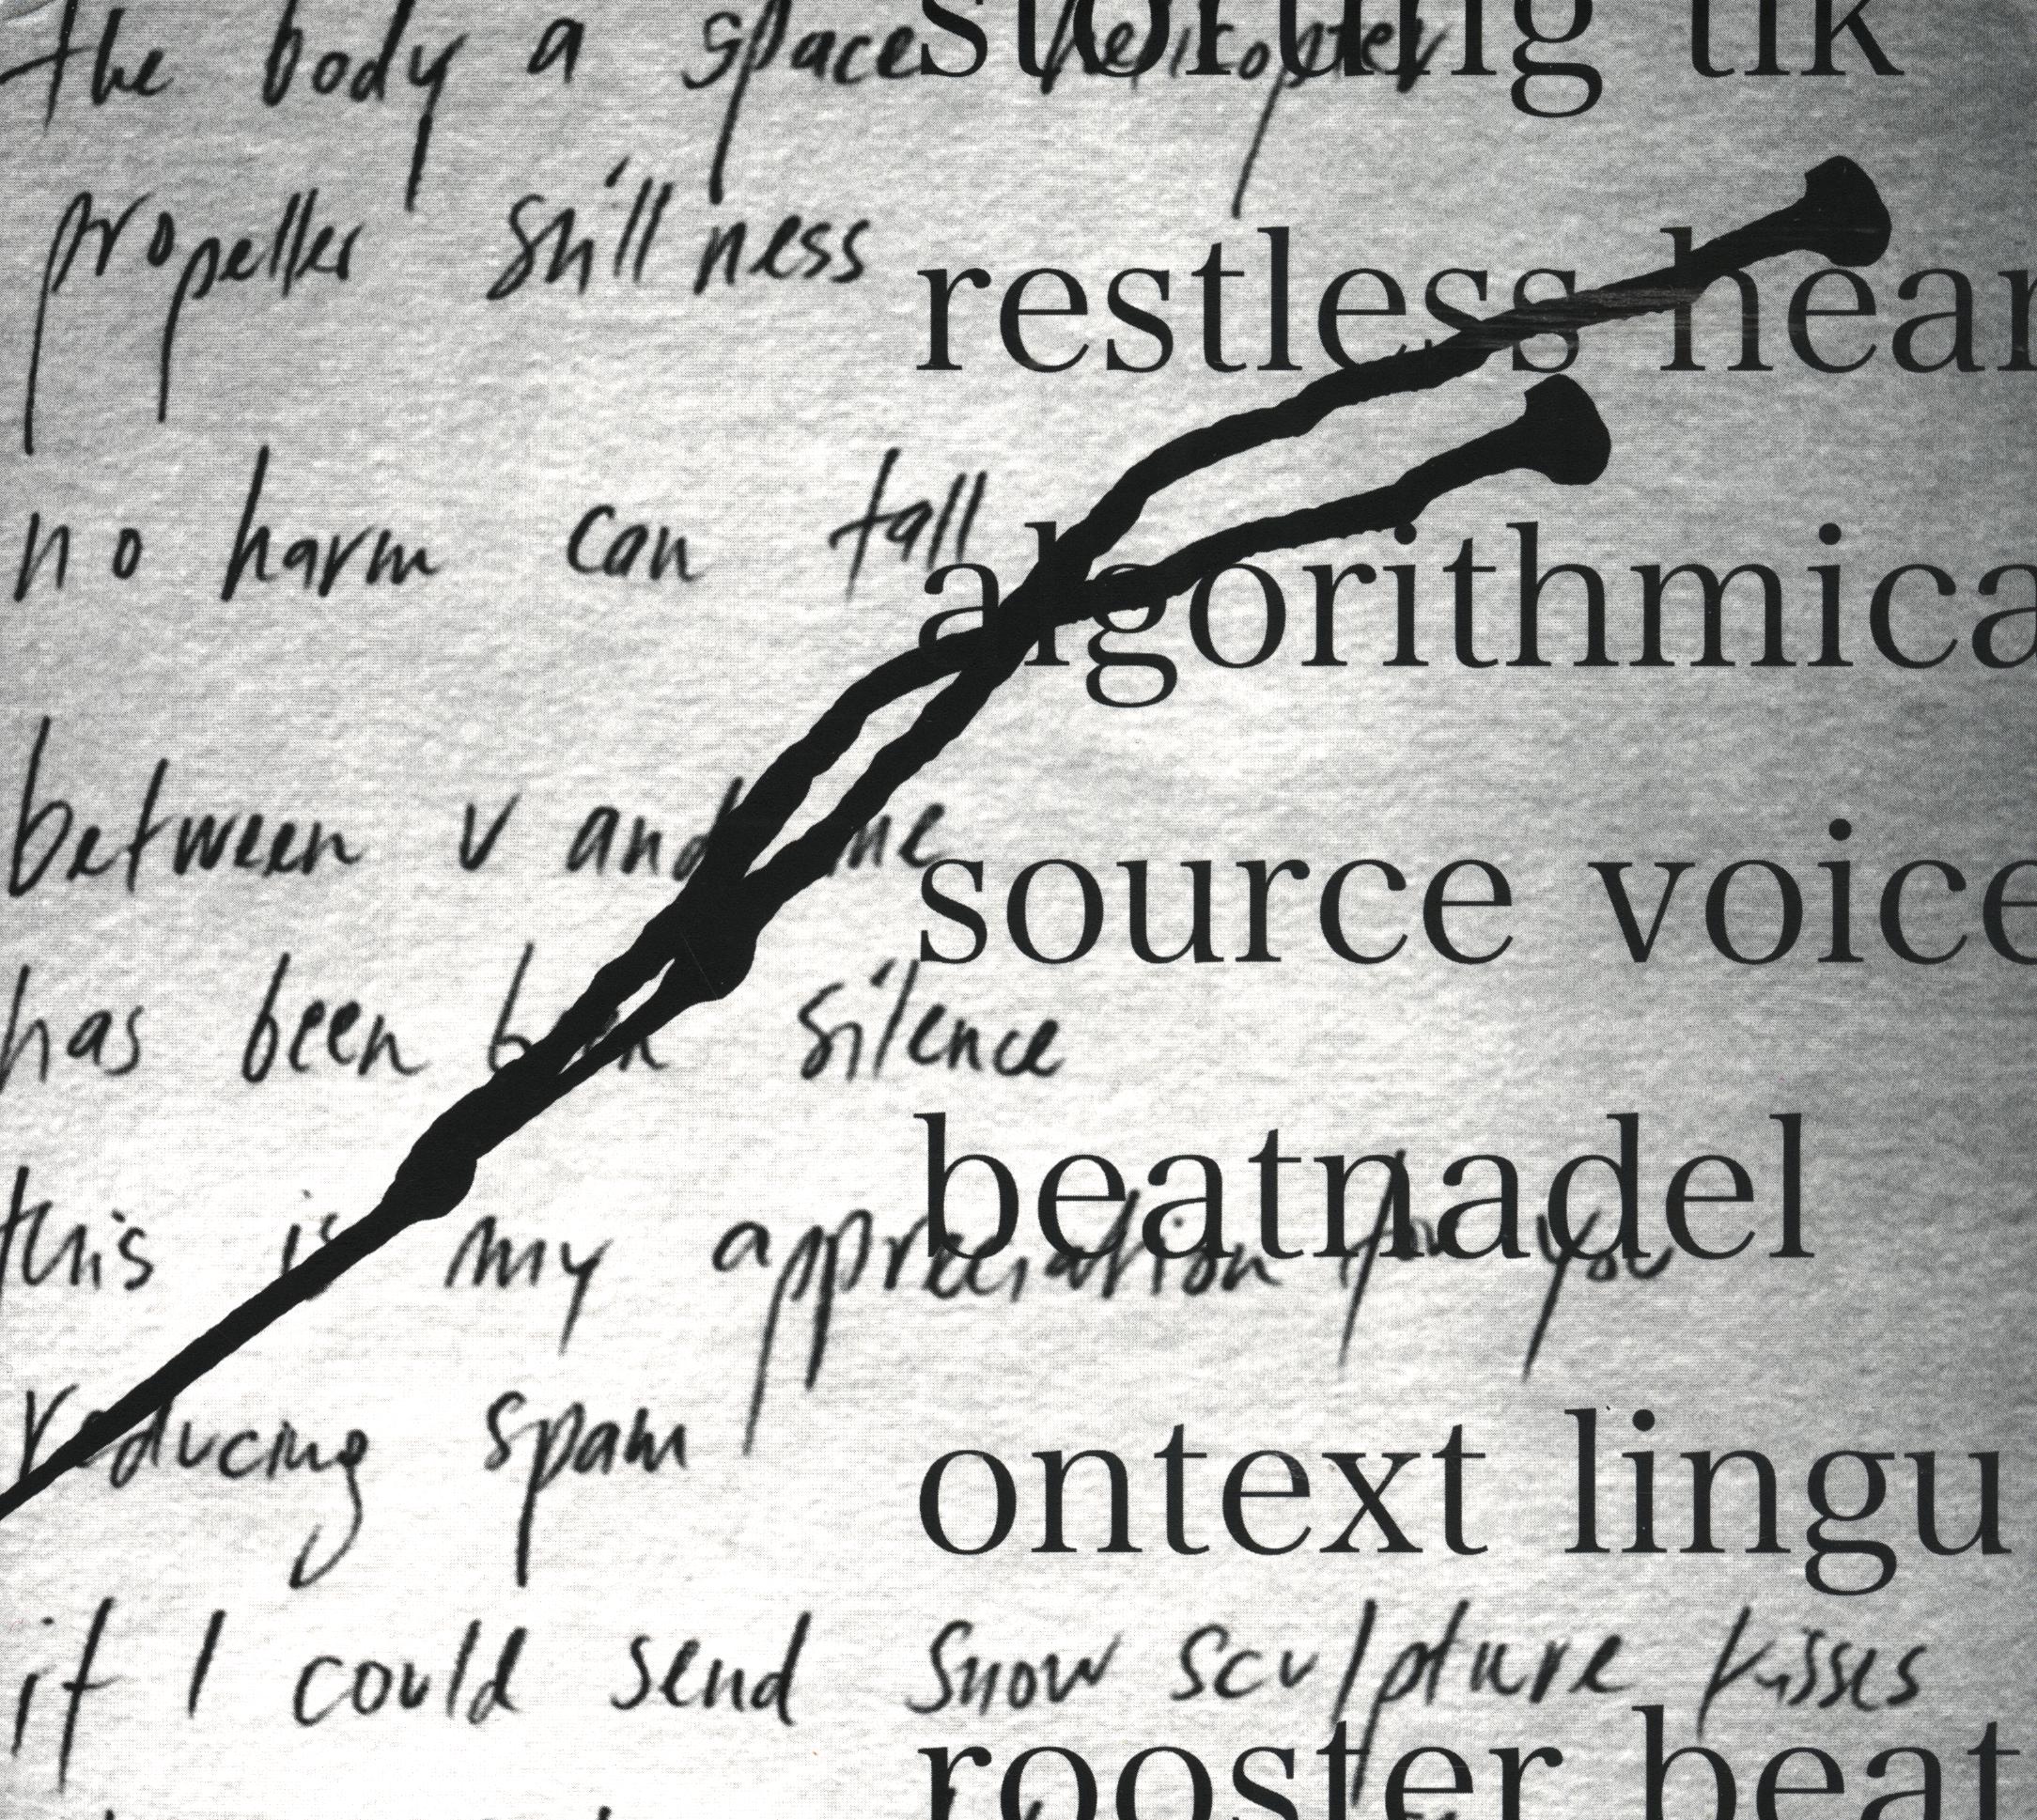 the body a space helicopter
propeller stillness
no harm can fall
between v and me
has been been silence
this is my appreciation for you
reducing spam
if I could send snow sculpture kisses
restless hear
algorithmica
source voice
beatnadel
ontext lingu
rooster beat